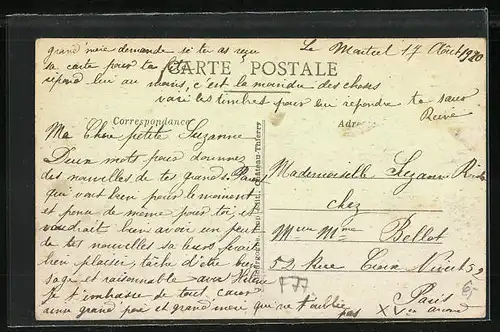 grand mère demande si tu as reçu
sa carte pour ta fête
répond lui au moins, c'est la moindre des choses
voici les timbres pour lui répondre ta sœur
Reine
Le Martiel 17 Août 1920
CARTE POSTALE
Correspondance
Adresse
Ma Chère petite Suzanne
Deux mots pour donner
des nouvelles de tes grands Parents
qui vont bien pour le moment
et pense de même pour toi, et
voudrait bien avoir un peu
de tes nouvelles sa leurs ferait
bien plaisir, tâche d'être bien
sage et raisonnable avec Hélène
Je t'embrasse de tout cœur
ainsi grand père et grand mère qui ne t'oublie
pas
Mademoiselle Suzanne
chez
Mme Bellot
52 Rue Croix Nivert 52
Paris
XV
F77
Château-Thierry